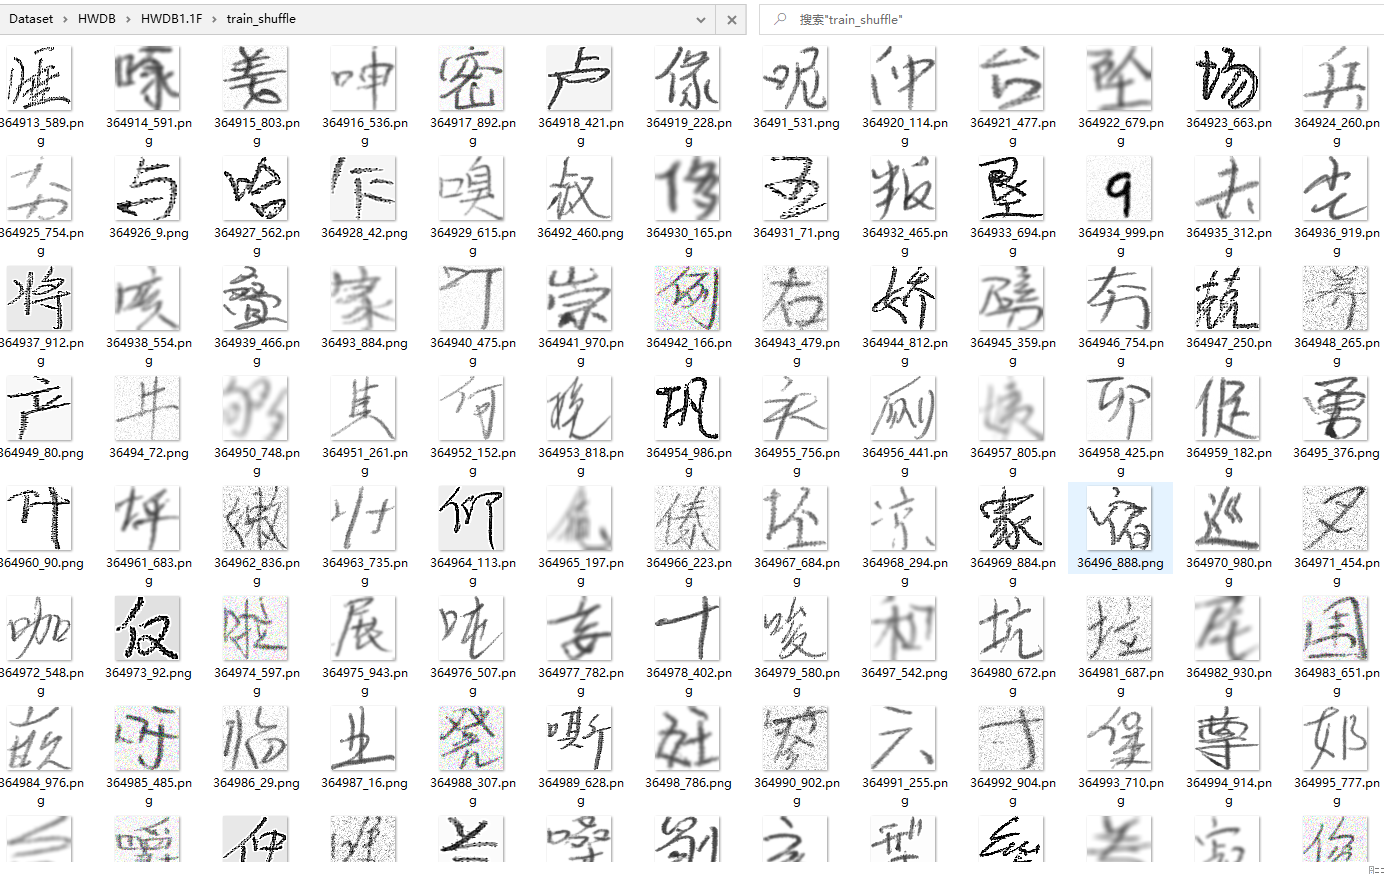 Dataset > HWDB > HWDB1.1F > train_shuffle
搜索"train_shuffle"
匡 啄 姜 呻 密 卢 像 呢 仲 台 坠 场 兵
364913_589.png 364914_591.png 364915_803.png 364916_536.png 364917_892.png 364918_421.png 364919_228.png 36491_531.png 364920_114.png 364921_477.png 364922_679.png 364923_663.png 364924_260.png
夯 与 哈 乍 嗅 叔 修 五 叛 垦 9 去 尘
364925_754.png 364926_9.png 364927_562.png 364928_42.png 364929_615.png 36492_460.png 364930_165.png 364931_71.png 364932_465.png 364933_694.png 364934_999.png 364935_312.png 364936_919.png
将 咳 叠 家 叮 崇 例 右 娇 劈 夯 兢 养
364937_912.png 364938_554.png 364939_466.png 36493_884.png 364940_475.png 364941_970.png 364942_166.png 364943_479.png 364944_812.png 364945_359.png 364946_754.png 364947_250.png 364948_265.png
产 井 够 其 何 娩 巩 夫 刷 卯 促 勇
364949_80.png 36494_72.png 364950_748.png 364951_261.png 364952_152.png 364953_818.png 364954_986.png 364955_756.png 364956_441.png 364957_805.png 364958_425.png 364959_182.png 36495_376.png
什 坪 嫩 归 仰 傣 坯 凉 家 宿 巡 夕
364960_90.png 364961_683.png 364962_836.png 364963_735.png 364964_113.png 364965_197.png 364966_223.png 364967_684.png 364968_294.png 364969_884.png 36496_888.png 364970_980.png 364971_454.png
咖 仅 啦 展 吨 妄 十 唆 和 坑 垃 尾 围
364972_548.png 364973_92.png 364974_597.png 364975_943.png 364976_507.png 364977_782.png 364978_402.png 364979_580.png 36497_542.png 364980_672.png 364981_687.png 364982_930.png 364983_651.png
嵌 呀 临 业 凳 嘶 妊 寥 六 寸 堡 尊 邬
364984_976.png 364985_485.png 364986_29.png 364987_16.png 364988_307.png 364989_628.png 36498_786.png 364990_902.png 364991_255.png 364992_904.png 364993_710.png 364994_914.png 364995_777.png